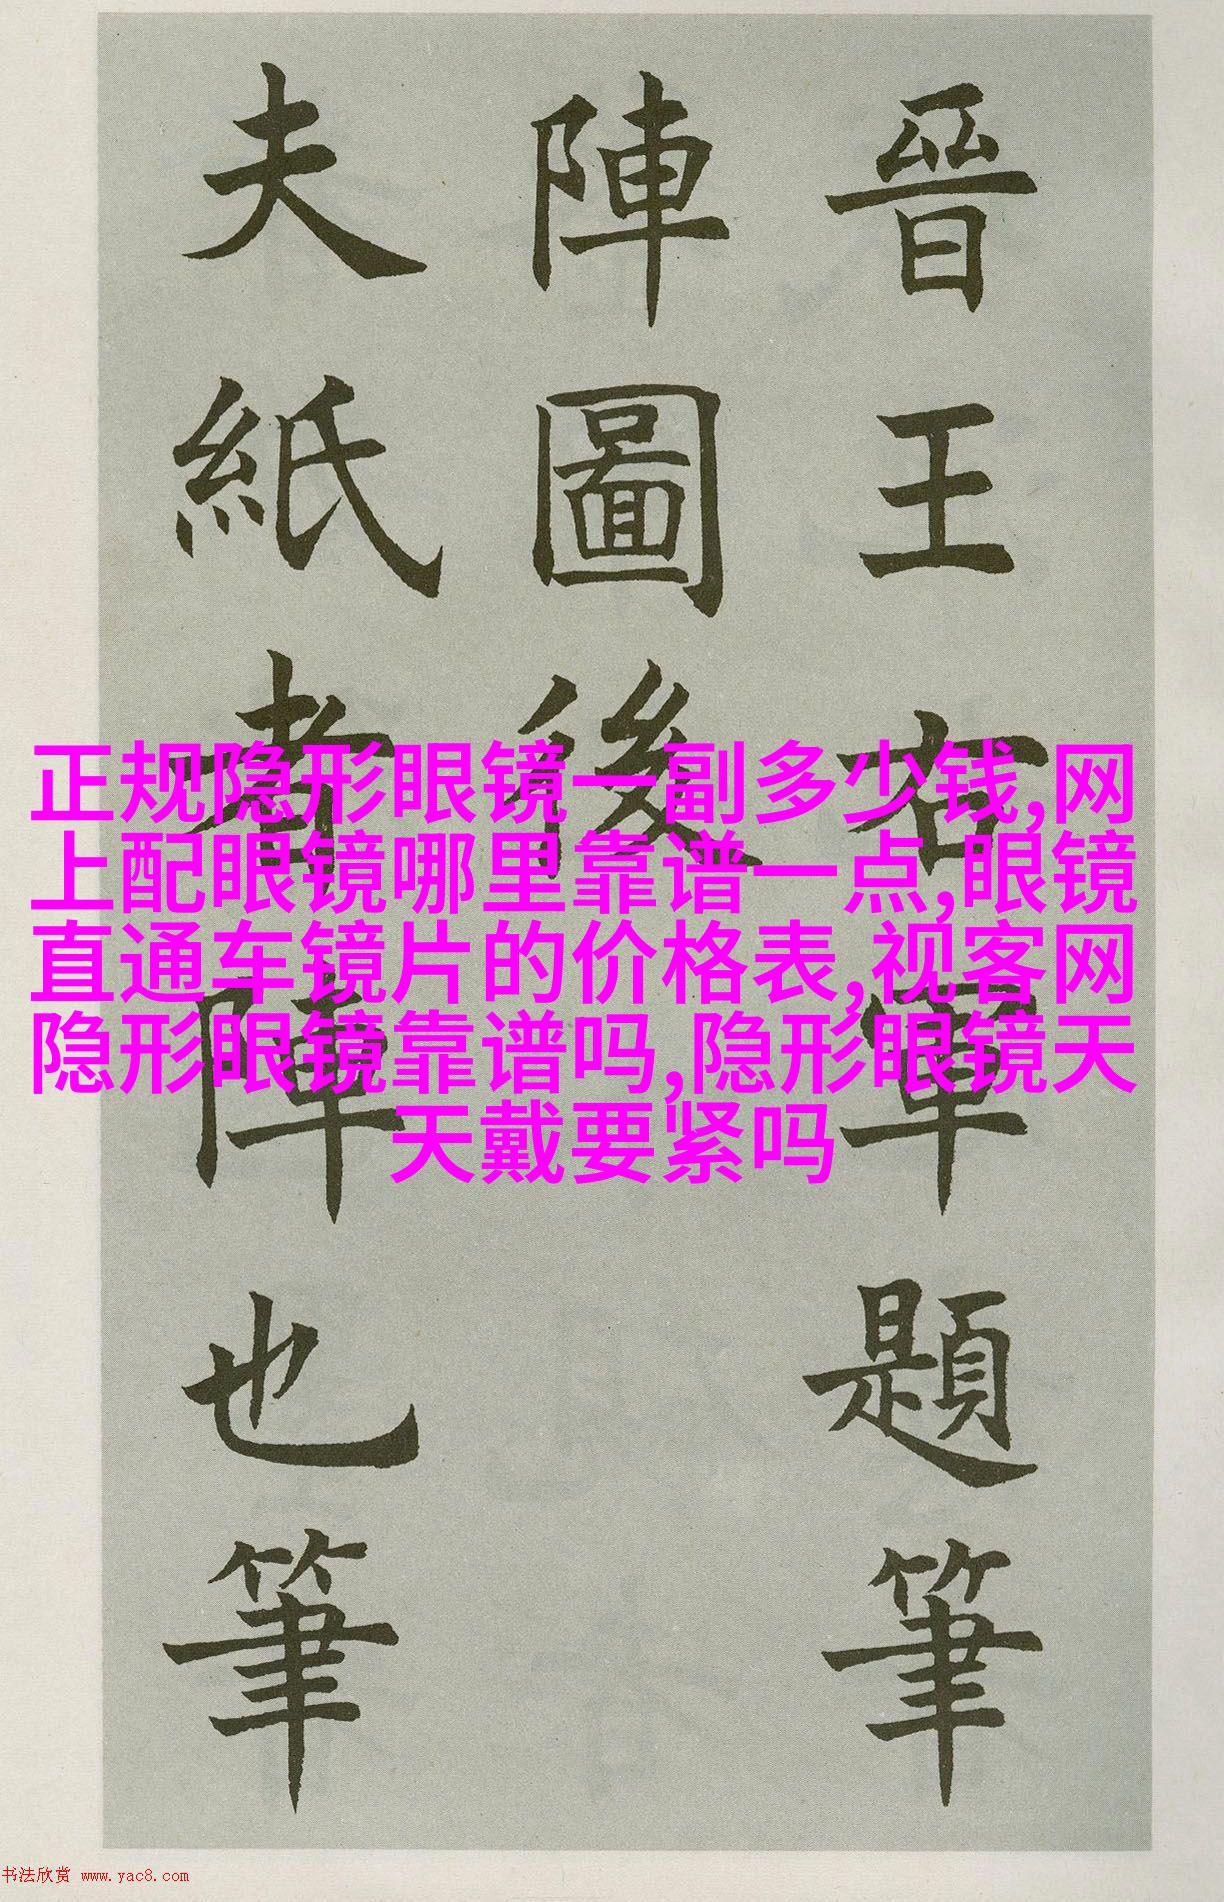 晉王右軍題筆
陣圖後
夫紙者陣也筆
正规隐形眼镜一副多少钱,网
上配眼镜哪里靠谱一点,眼镜
直通车镜片的价格表,视客网
隐形眼镜靠谱吗,隐形眼镜天
天戴要紧吗
书法欣赏 www.yac8.com